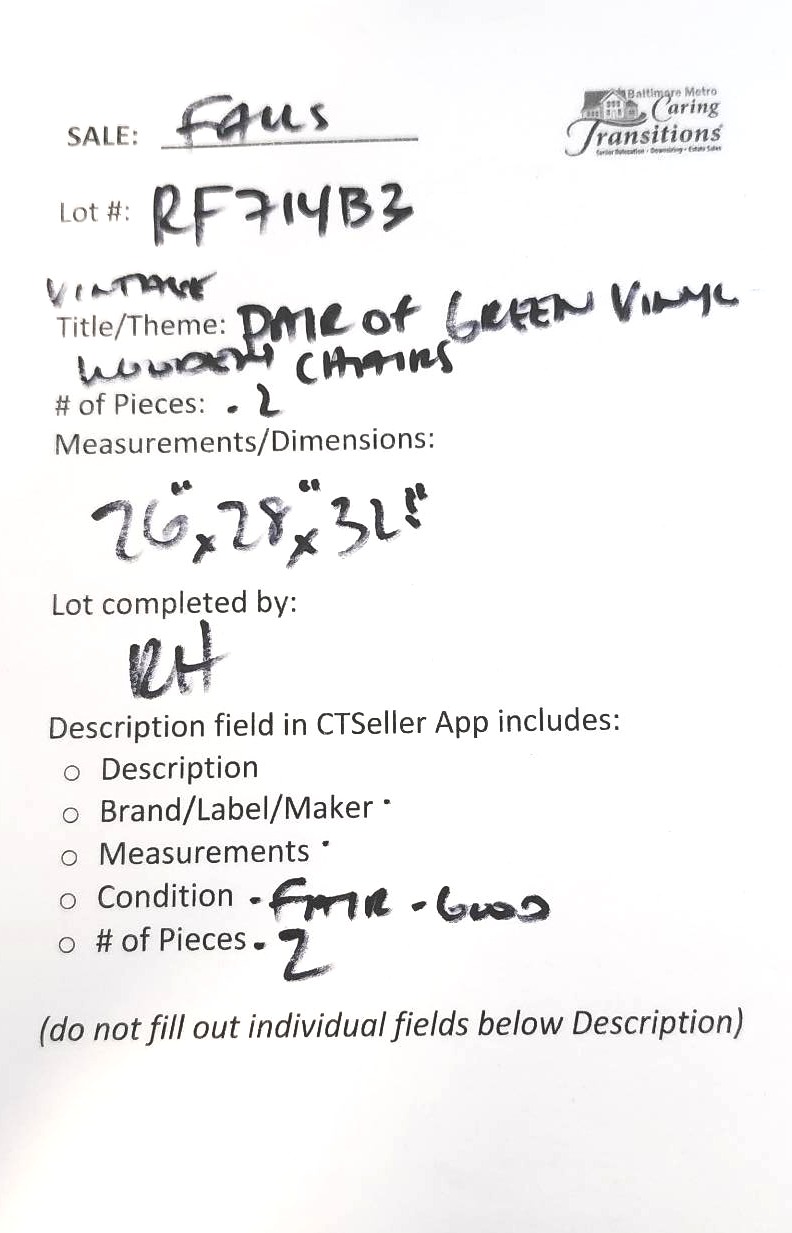 SALE: Falls
Baltimore Metro
Caring
Transitions
Senior Relocation • Downsizing • Estate Sales
Lot #: RF714B3
VINTAGE
Title/Theme: PAIR OF GREEN VINYL
WOODEN CHAIRS
# of Pieces: . 2
Measurements/Dimensions:
26" x 28" x 32"
Lot completed by:
RH
Description field in CTSeller App includes:
○ Description
○ Brand/Label/Maker
○ Measurements
○ Condition - FAIR - GOOD
○ # of Pieces - 2
(do not fill out individual fields below Description)